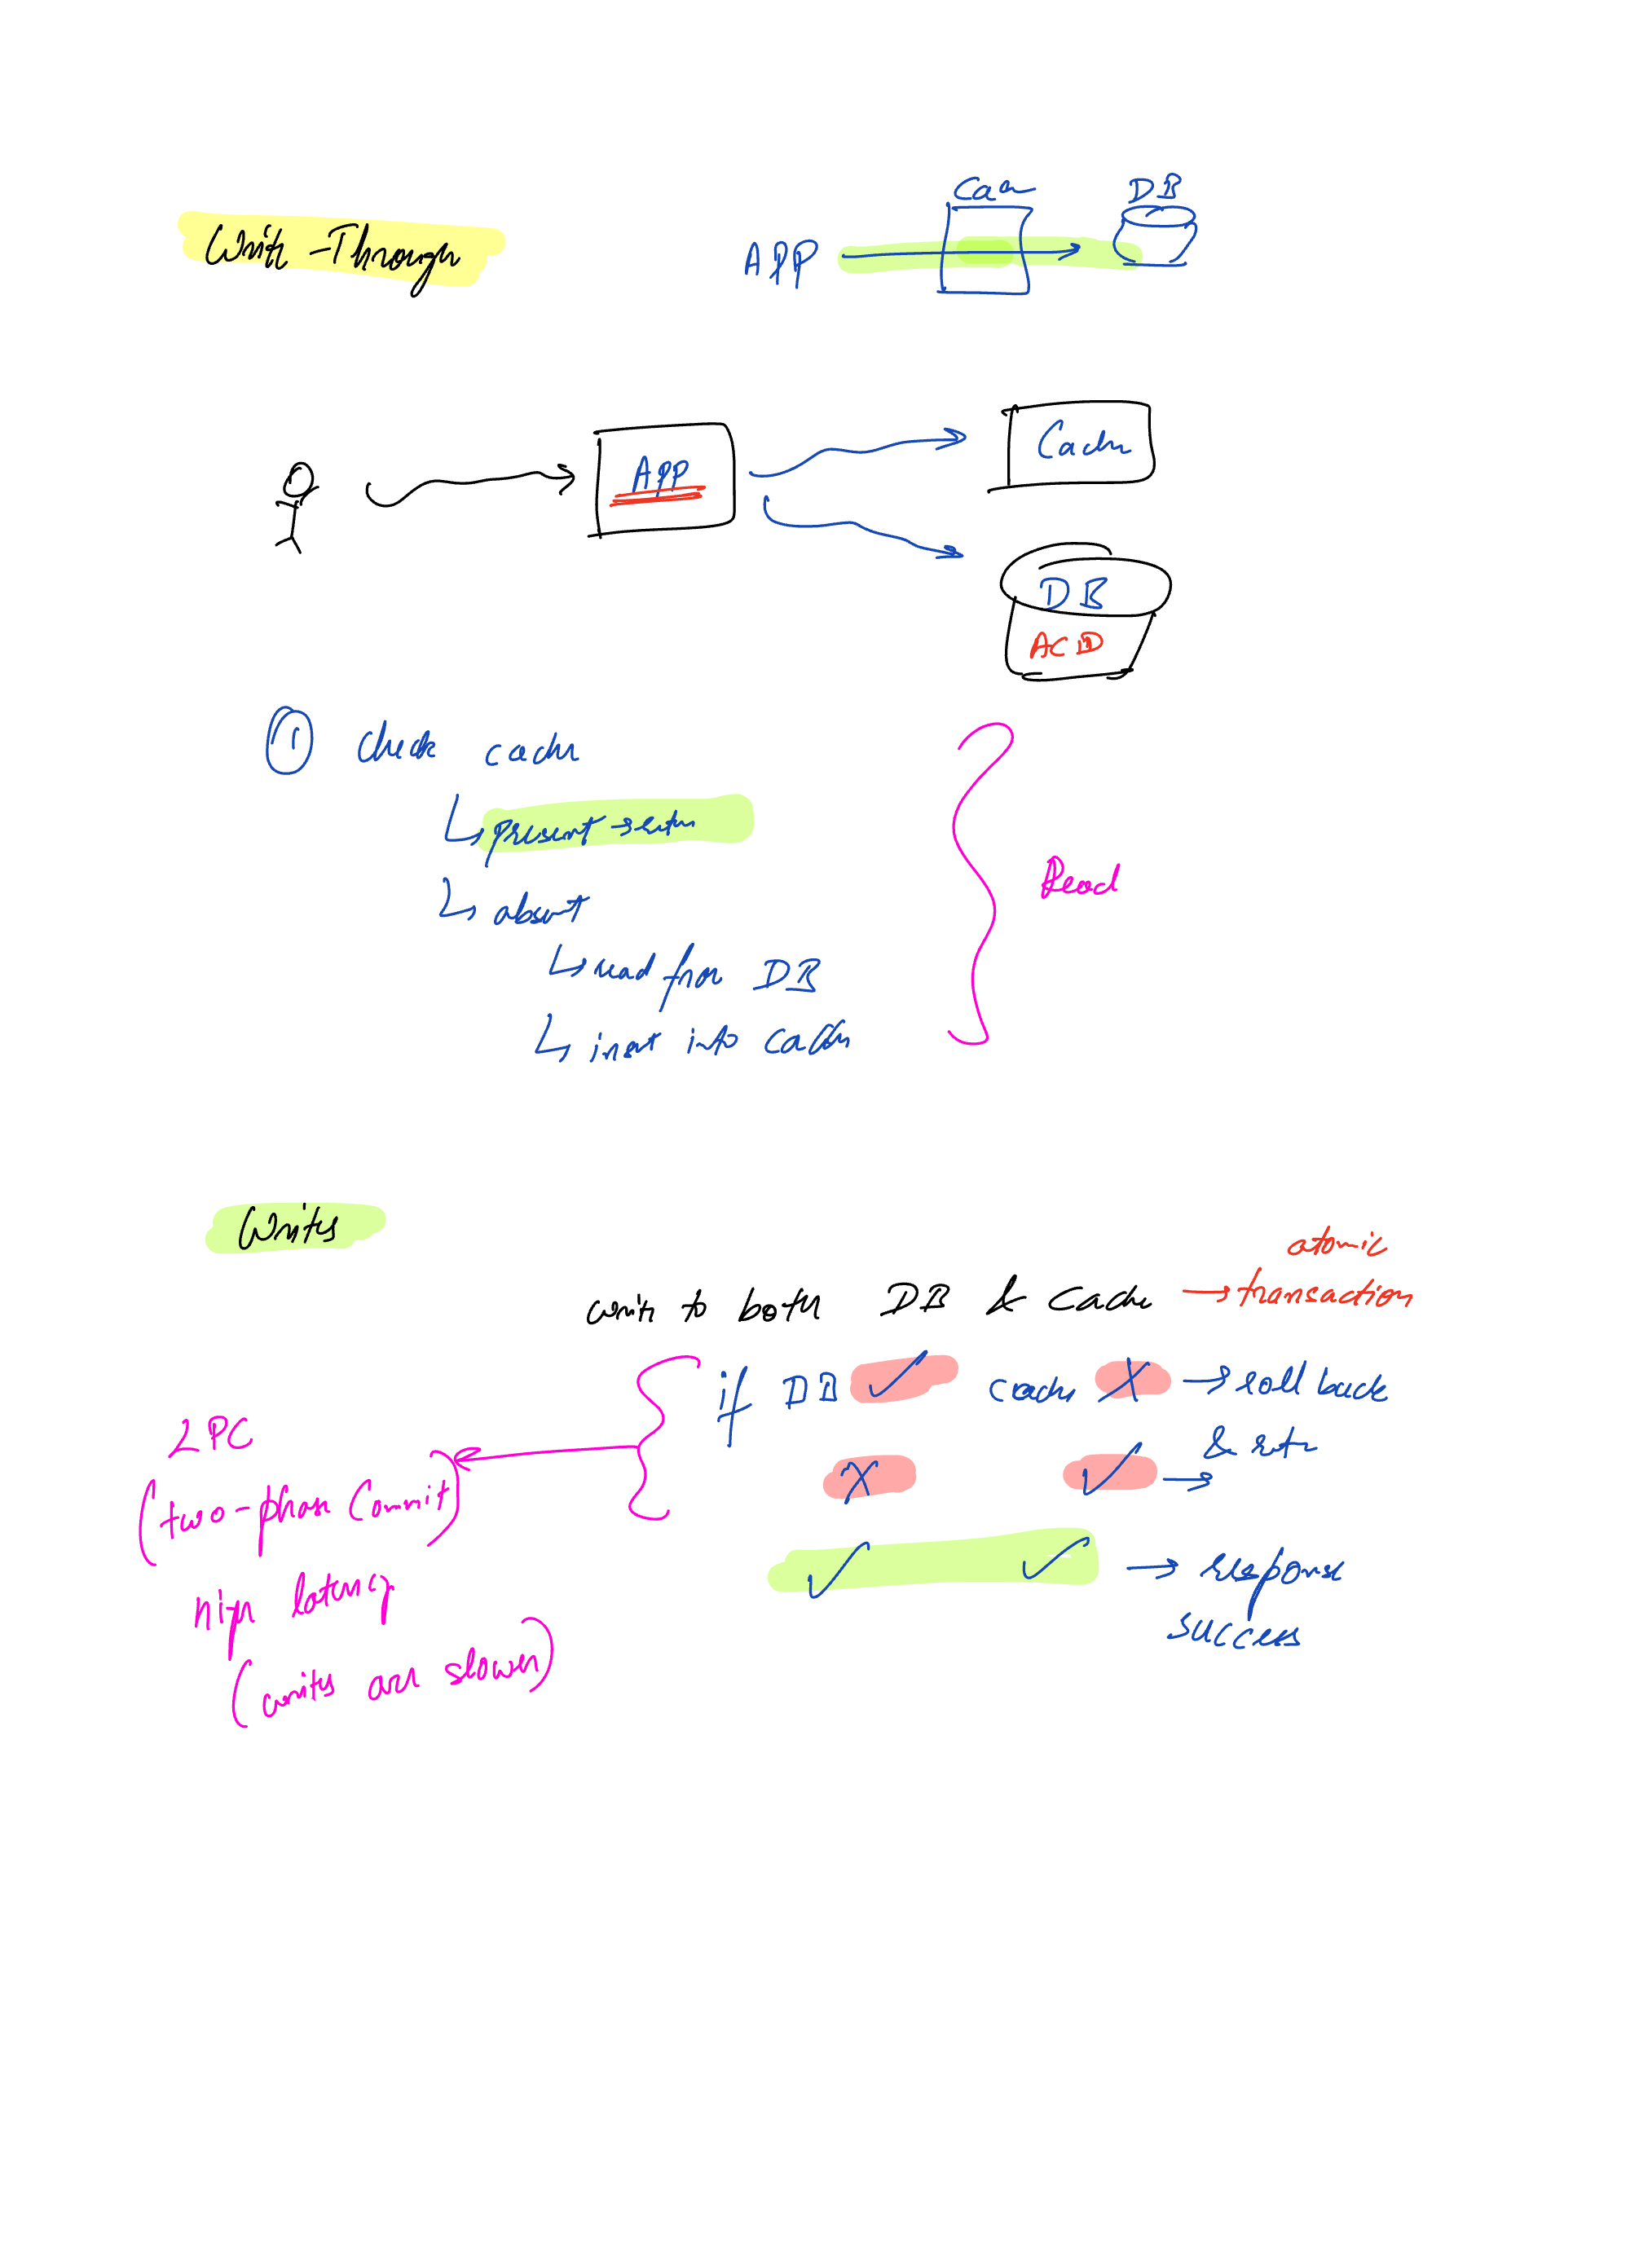 Write-Through
Cache
DB
APP
APP
Cache
DB
ACID
1 check cache
present return
absent
read from DB
insert into cache
Read
Writes
write to both DB & Cache → atomic transaction
if DB ✓ cache X → roll back & retry
X ✓ →
✓ ✓ → response success
2PC
(two-phase Commit)
high latency
(writes are slower)